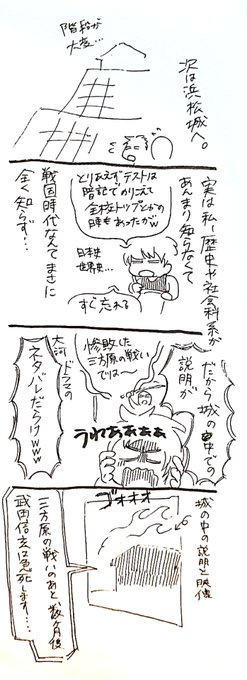 次は浜松城へ。
階段が
大変…
実は私、歴史や社会科系が
あんまり知らなくて
とりあえずテストは
暗記でのりこえて
全校トップとかの
時もあったがw
日本史
世界史…
すぐ忘れる
戦国時代なんてまさに
全く知らず…
だから城の中での
説明が
惨敗した
三方原の戦い
では〜
うわあぁぁぁ
大河ドラマの
ネタバレだらけwww
城の中の説明と映像
ゴオオオ
三方原の戦いのあと、数ヶ月後
武田信玄は急死します…